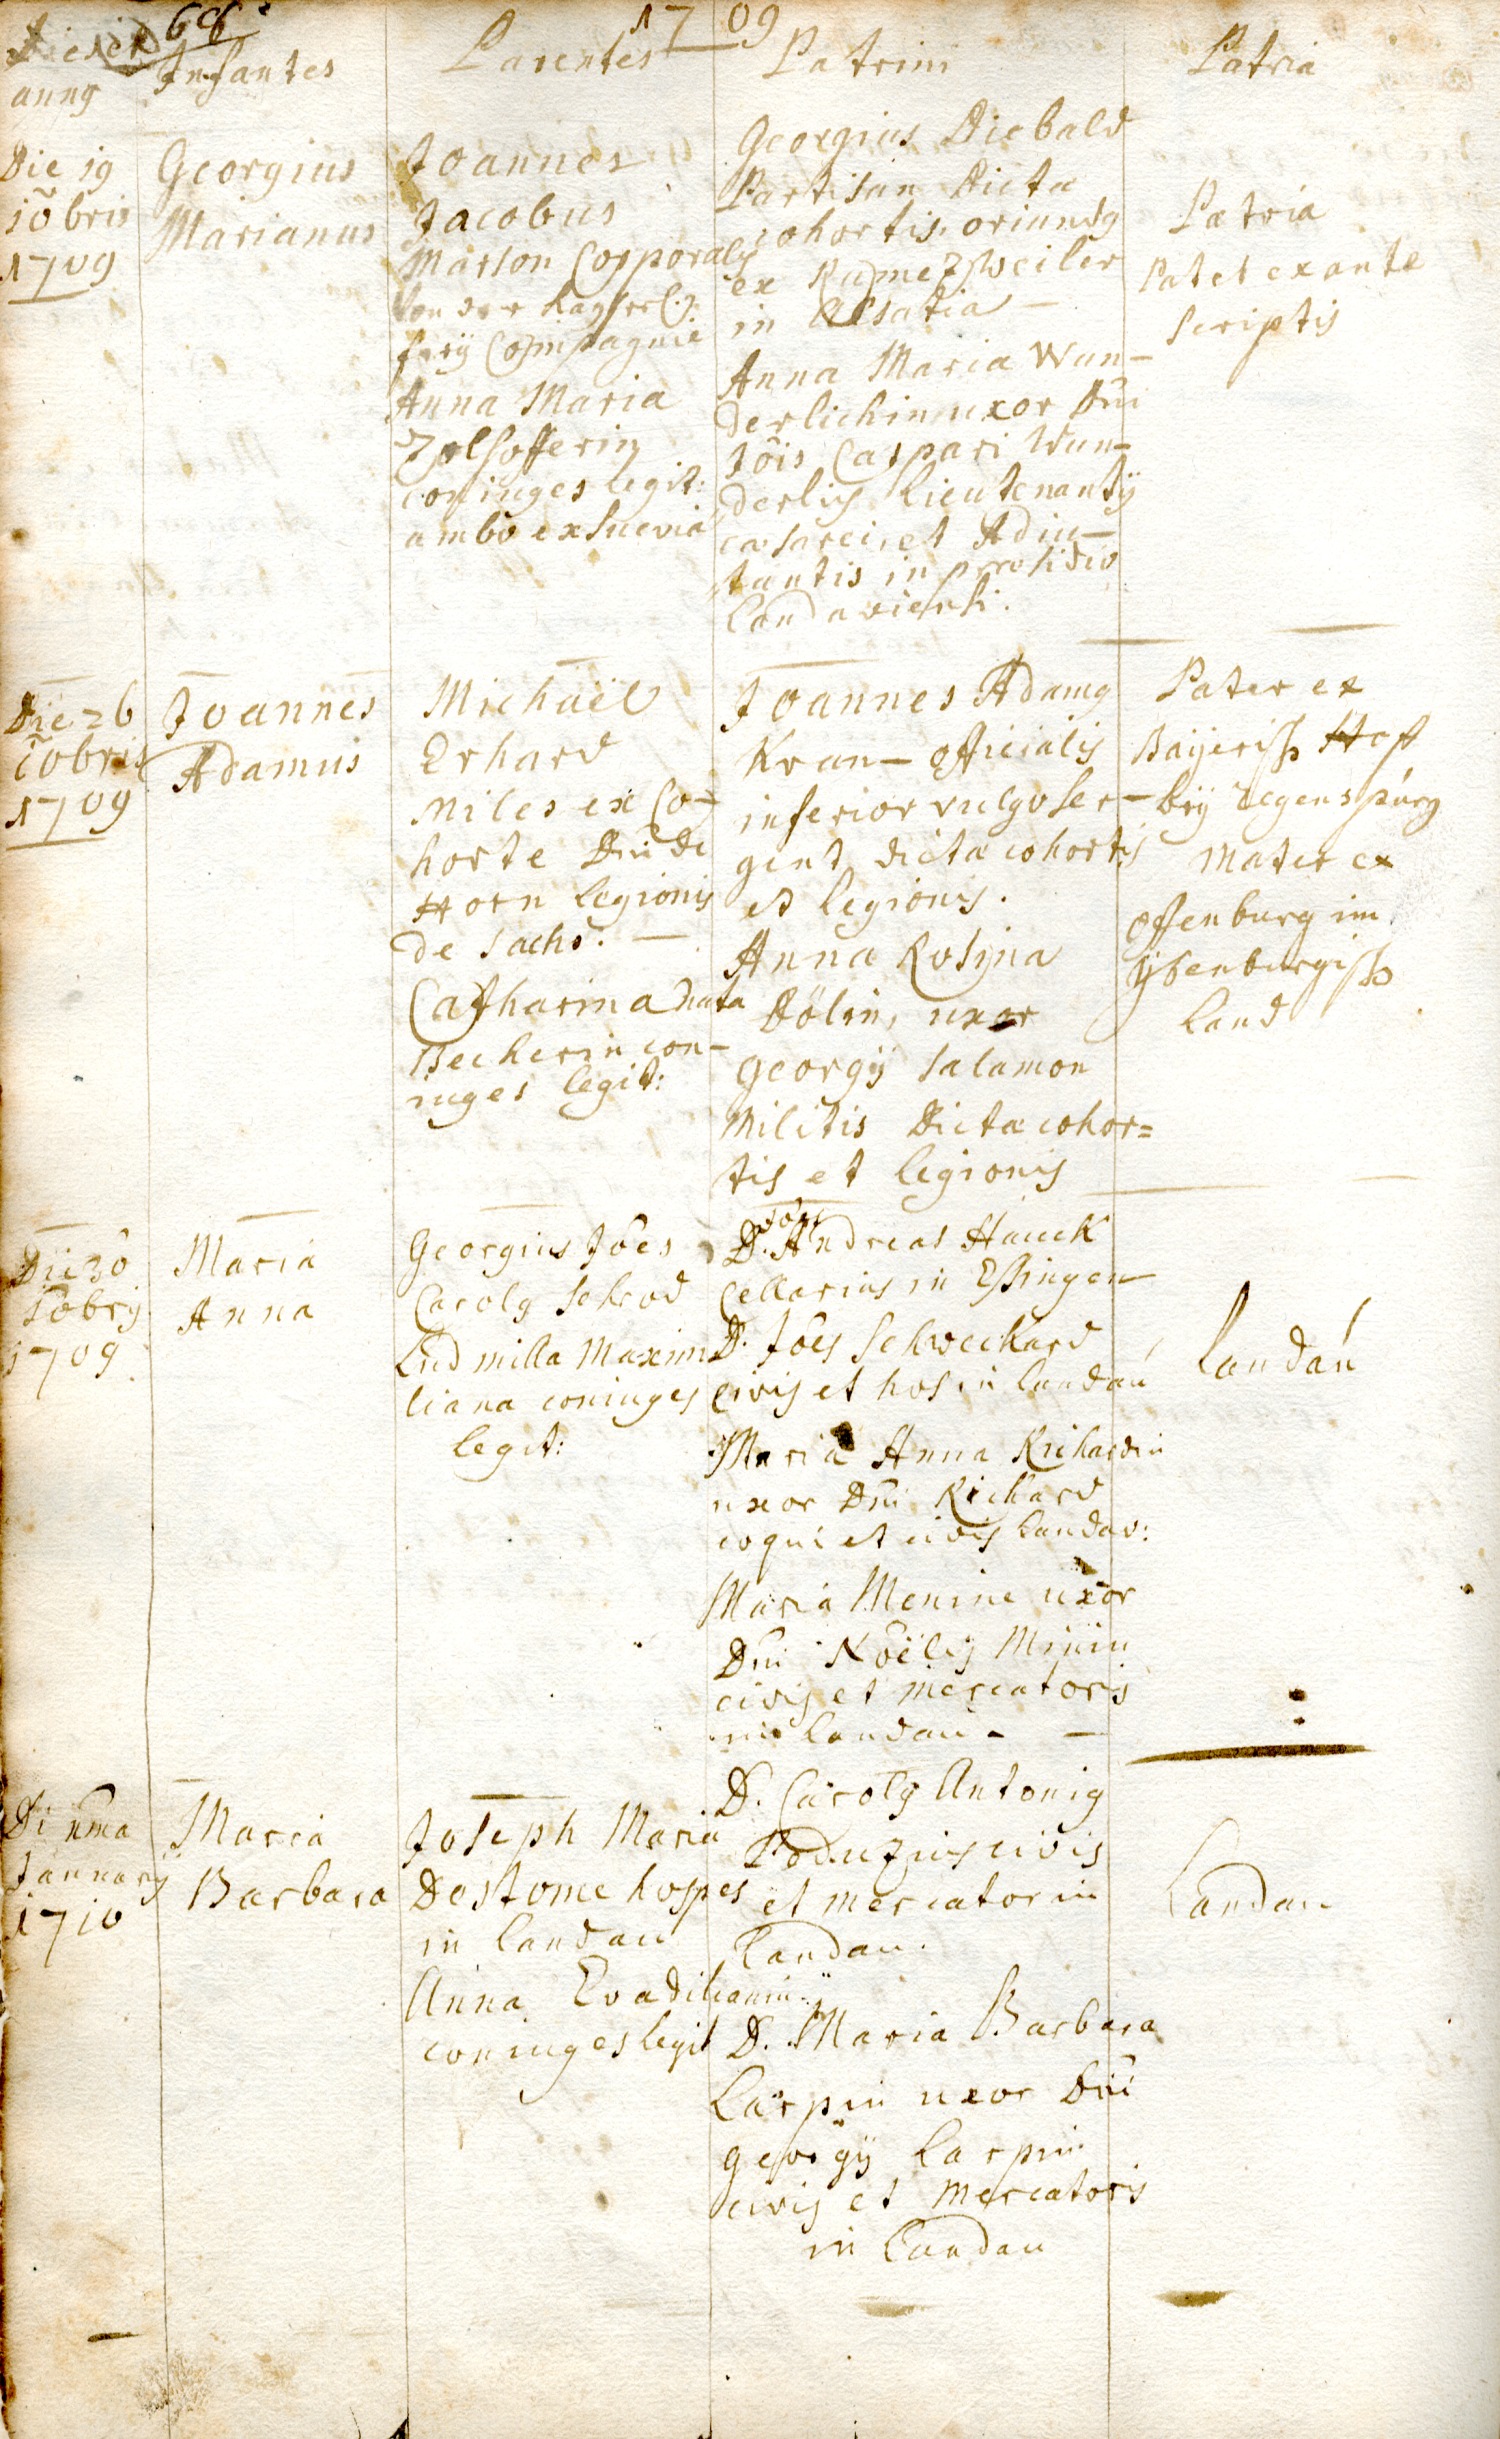 66
1709
Dies et
annq
Infantes
Parentes
Patrini
Patria
Die 19
10bris
1709
Georgius
Marianus
Joannes
Jacobus
Marson Corporalis
von der Kayserl:
frey Compagnie
Anna Maria
coniuges legit:
ambo ex Suevia
Georgius Diebald
Partisan Dicta
cohortis, oriundq
ex
in Alsatia —
Anna Maria Wun-
derlichin uxor Dni
Jois Caspari Wun-
derlis Lieutenantis
caesarei, et Adiu-
tantis in praesidio
Landaviensi.
Patria
Patet ex ante
scriptis
Die 26
10bris
1709
Joannes
Adamus
Michaël
Erhard
Miles ex Co-
horte Dni de
Horn legionis
de Sachs. —
Catharina nata
Becherin con-
iuges legit:
Joannes Adamq
Kran- officialis
inferior vulgo ser-
gent dicta cohortis
et legionis.
Anna Rosina
Dölin, uxor
Georgij Salamon
Militis Dicta cohor=
tis et legionis
Pater ex
Bayerish Hoff
bey Regenspurg
Mater ex
Offenburg im
Ysenburgish
Land
Die 30
10bris
1709
Maria
Anna
Georgius Joes
Carolq Schrod
Ludmilla Maximi
liana coniuges
legit:
D. Andreas Hauck
Cellarius in Essingen
D. Joes Schweickard
civis et hos in Landau
Maria Anna Richardin
uxor Dni Richard
coqui et civis Landav:
Maria Menine uxor
Dni Noëlis
civis et mercatoris
in Landau - —
Landau
Di uma
Januarij
1710
Maria
Barbara
Joseph Maria
Dostome hospes
in Landau
Anna
coniuges legit
D. Carolq Antoniq
civis
et mercator in
Landau.
D. Maria Barbara
Larpin uxor Dni
Georgij Larpin
civis et Mercatoris
in Landau
Landau